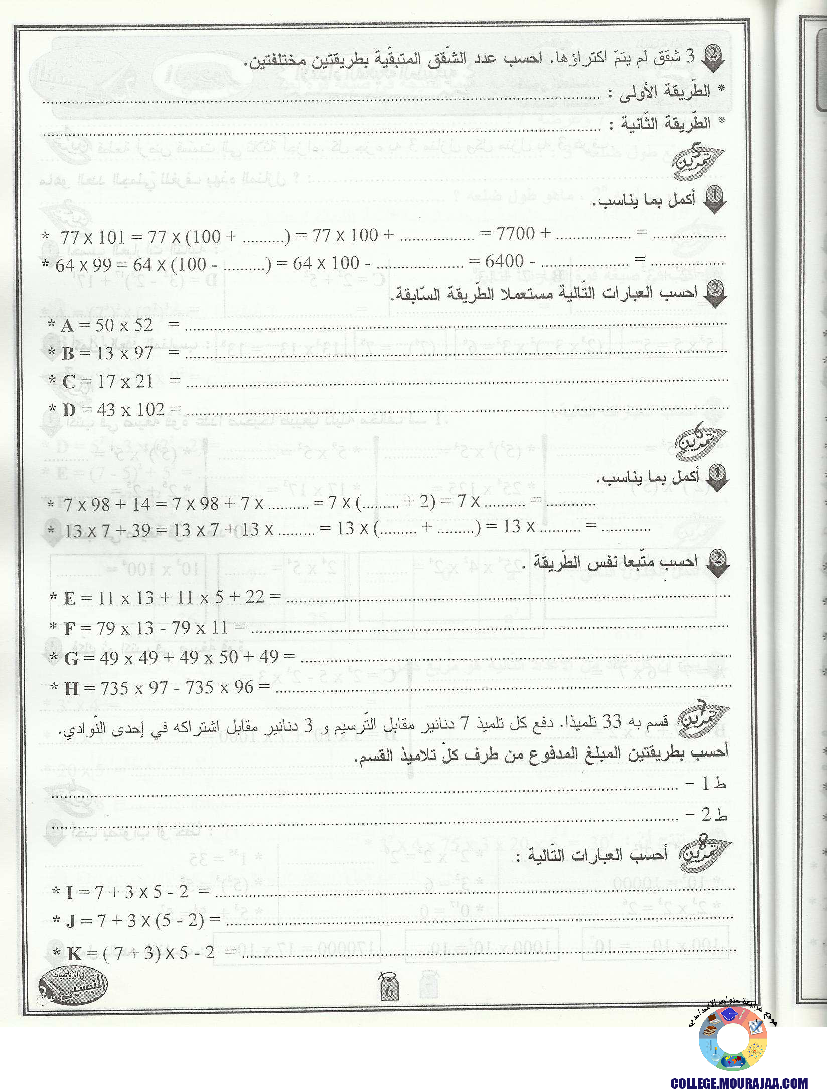 2 3 شقق لم يتمّ اكتراؤها. احسب عدد الشّقق المتبقّية بطريقتين مختلفتين.
* الطّريقة الأولى : ........................
* الطّريقة الثّانية : ........................
تمرين 5
1 أكمل بما يناسب.
* 77 x 101 = 77 x (100 + .........) = 77 x 100 + ................ = 7700 + ................ = ................
* 64 x 99 = 64 x (100 - .........) = 64 x 100 - ................ = 6400 - ................ = ................
2 احسب العبارات التّالية مستعملا الطّريقة السّابقة.
* A = 50 x 52 = ........................
* B = 13 x 97 = ........................
* C = 17 x 21 = ........................
* D = 43 x 102 = ........................
تمرين 6
1 أكمل بما يناسب.
* 7 x 98 + 14 = 7 x 98 + 7 x ......... = 7 x (........ + 2) = 7 x ......... = ...........
* 13 x 7 + 39 = 13 x 7 + 13 x ......... = 13 x (........ + ........) = 13 x ......... = ...........
2 احسب متّبعا نفس الطّريقة .
* E = 11 x 13 + 11 x 5 + 22 = ........................
* F = 79 x 13 - 79 x 11 = ........................
* G = 49 x 49 + 49 x 50 + 49 = ........................
* H = 735 x 97 - 735 x 96 = ........................
تمرين 7 قسم به 33 تلميذا. دفع كل تلميذ 7 دنانير مقابل التّرسيم و 3 دنانير مقابل اشتراكه في إحدى النّوادي.
أحسب بطريقتين المبلغ المدفوع من طرف كلّ تلاميذ القسم.
ط 1 – ........................
ط 2 – ........................
تمرين 8 أحسب العبارات التّالية :
* I = 7 + 3 x 5 - 2 = ........................
* J = 7 + 3 x (5 - 2) = ........................
* K = ( 7 + 3) x 5 - 2 = ........................
6
COLLEGE.MOURAJAA.COM